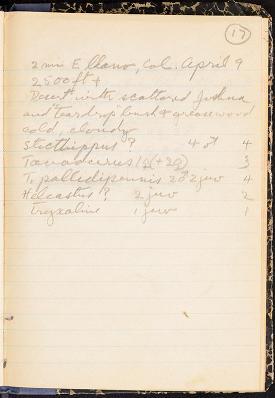 17
2 mi E Llano, Cal. April 9
2500 ft +
Desert with scattered Joshua
and "teardrop" bush & greasewood
cold, cloudy
Sticthippus ? 4 4
Taeniocerus (+2♀) 3
T. pallidipennis 2♂ 2 juv 4
Heliastus ? 2 juv 2
Tryxaline 1 juv 1